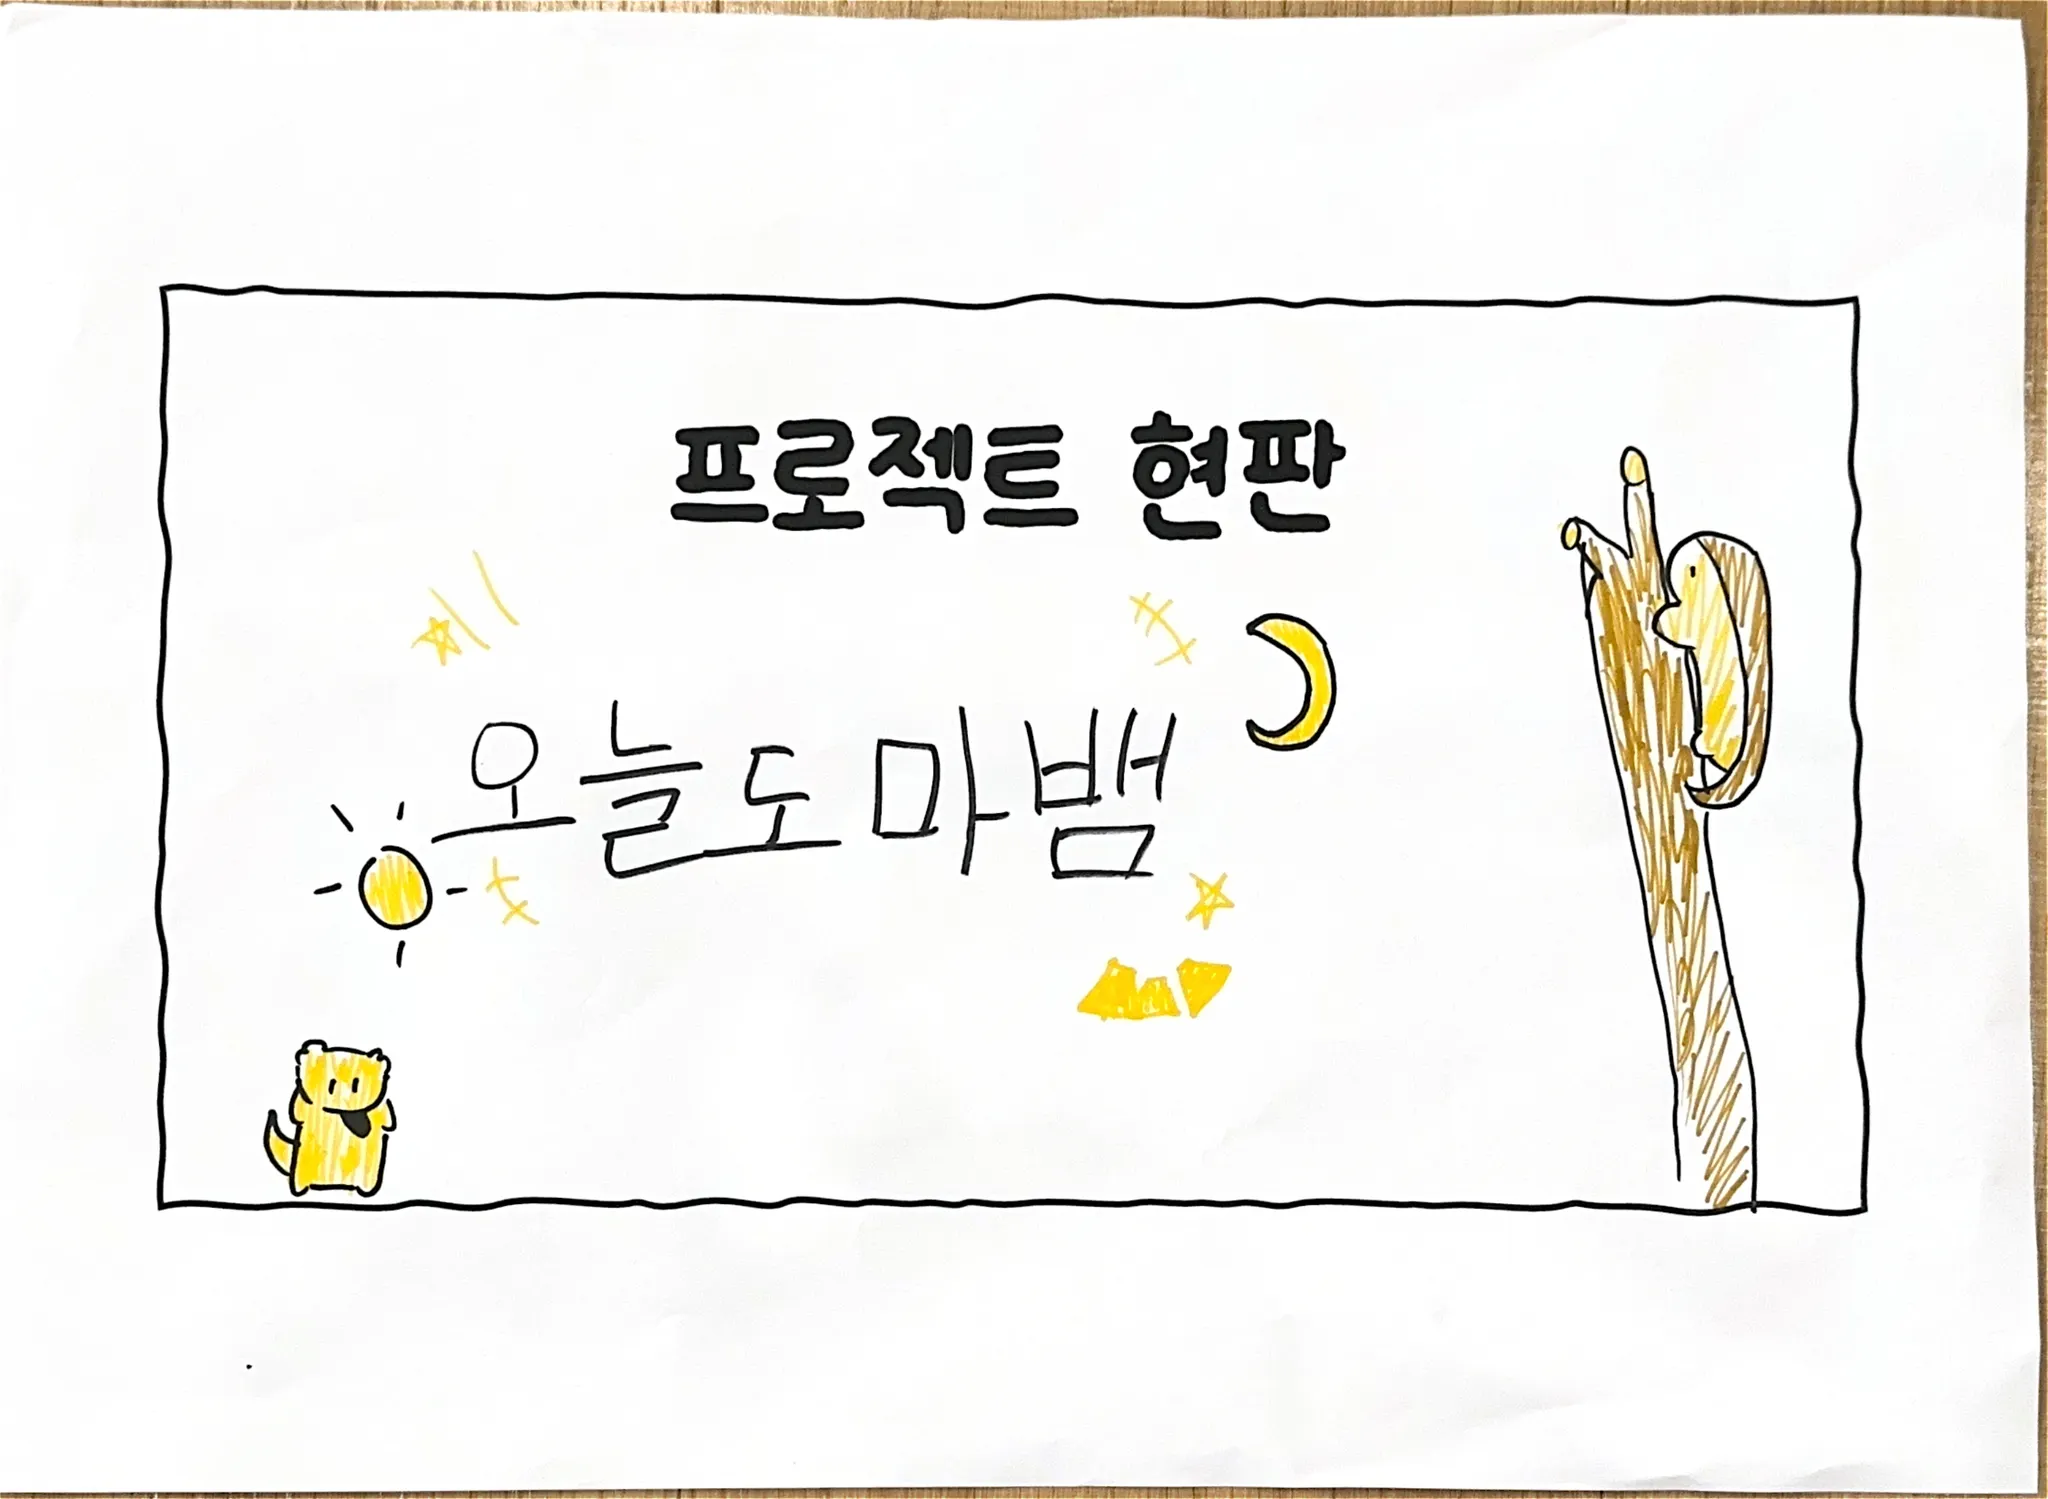 프로젝트 현판
오늘도마뱀